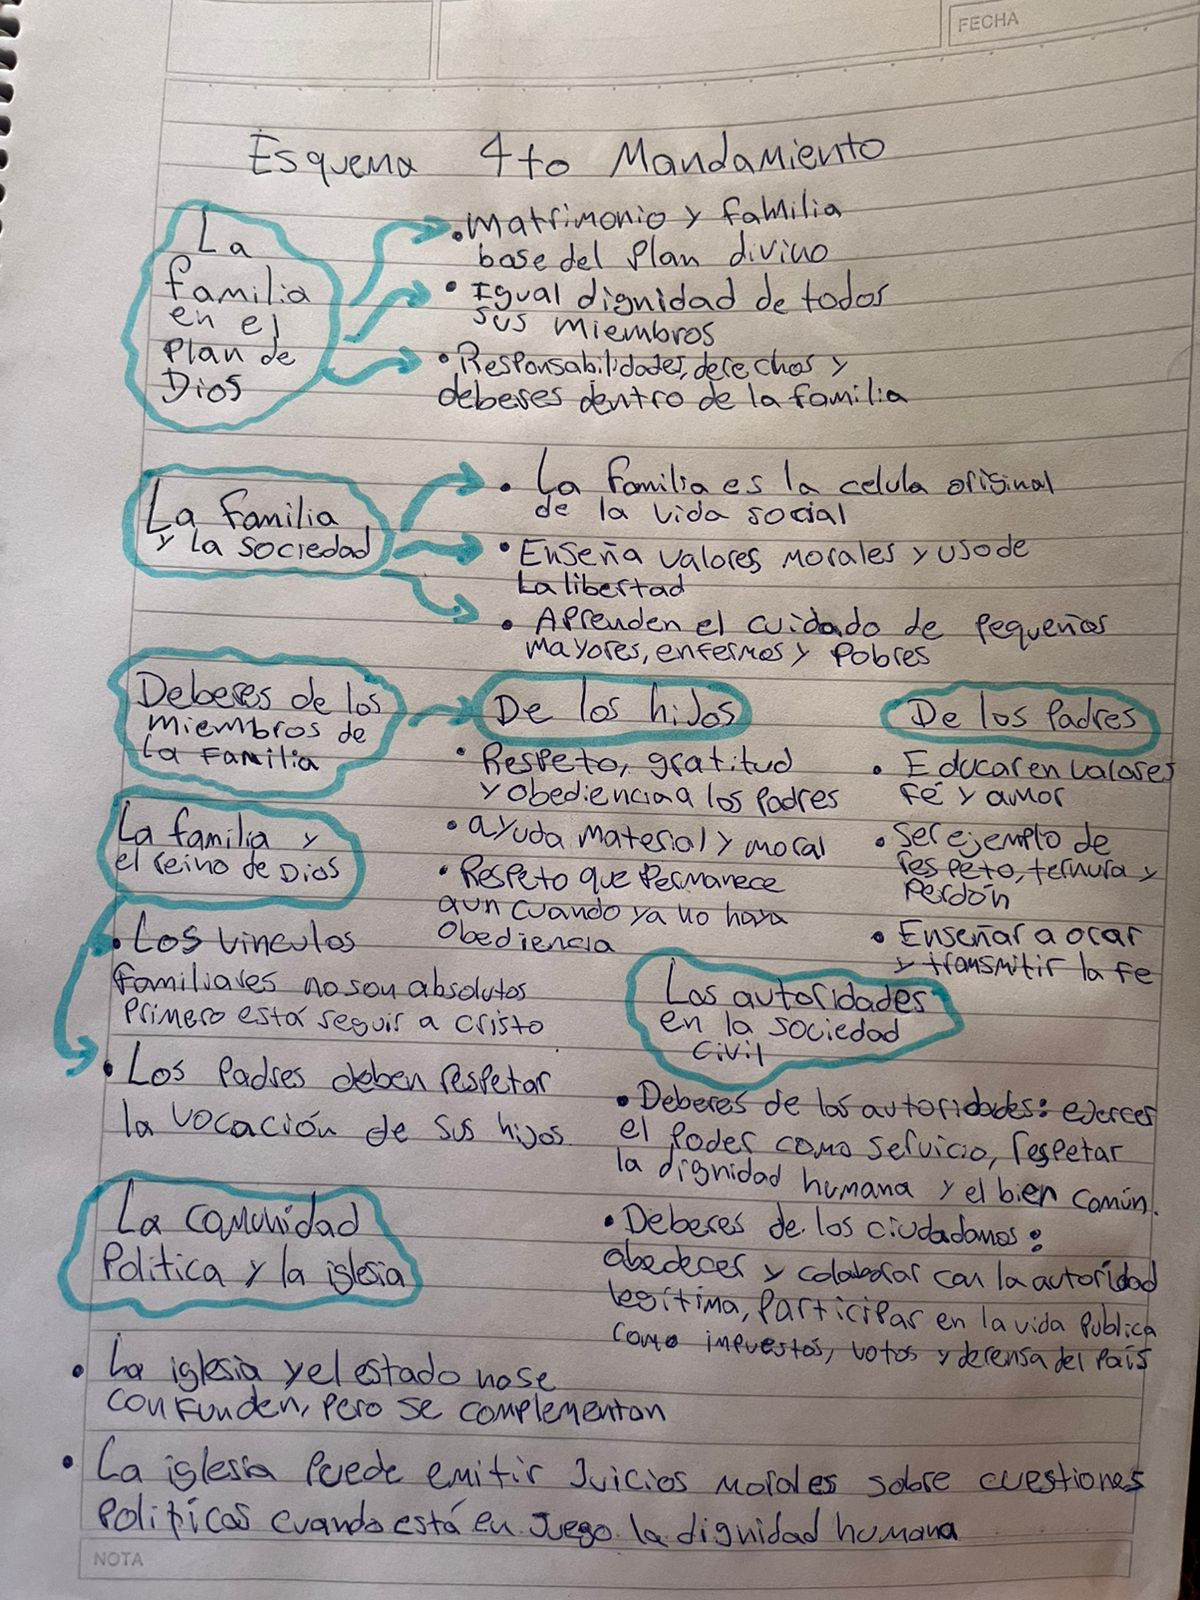 FECHA
Esquema 4to Mandamiento
La
familia
en el
Plan de
Dios
• Matrimonio y familia
base del Plan divino
• Igual dignidad de todos
sus miembros
• Responsabilidades, derechos y
deberes dentro de la familia
La familia
y la sociedad
• La familia es la celula original
de la vida social
• Enseña valores morales y uso de
La libertad
• Aprenden el cuidado de pequeños
mayores, enfermos y pobres
Deberes de los
miembros de
La Familia
De los hijos
• Respeto, gratitud
y obediencia a los padres
• ayuda material y moral
• Respeto que permanece
aun cuando ya no haya
obediencia
De los Padres
• Educar en valores
Fé y amor
• Ser ejemplo de
respeto, ternura y
Perdón
• Enseñar a orar
y transmitir la fe
La familia y
el reino de Dios
• Los vinculos
familiares no son absolutos
Primero está seguir a Cristo
• Los Padres deben respetar
la vocación de sus hijos
Las autoridades
en la sociedad
civil
• Deberes de las autoridades: ejercer
el Poder como servicio, respetar
la dignidad humana y el bien común.
• Deberes de los ciudadanos:
obedecer y colaborar con la autoridad
legítima, Participar en la vida publica
como impuestos, votos y defensa del País
La comunidad
Politica y la iglesia
• La iglesia y el estado no se
confunden, pero se complementan
• La iglesia Puede emitir Juicios morales sobre cuestiones
Politicas cuando está en Juego la dignidad humana
NOTA